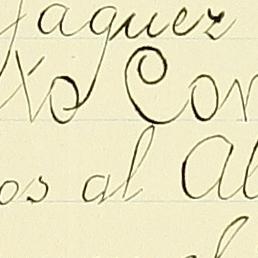 Jaquez
xo Con
os al Al